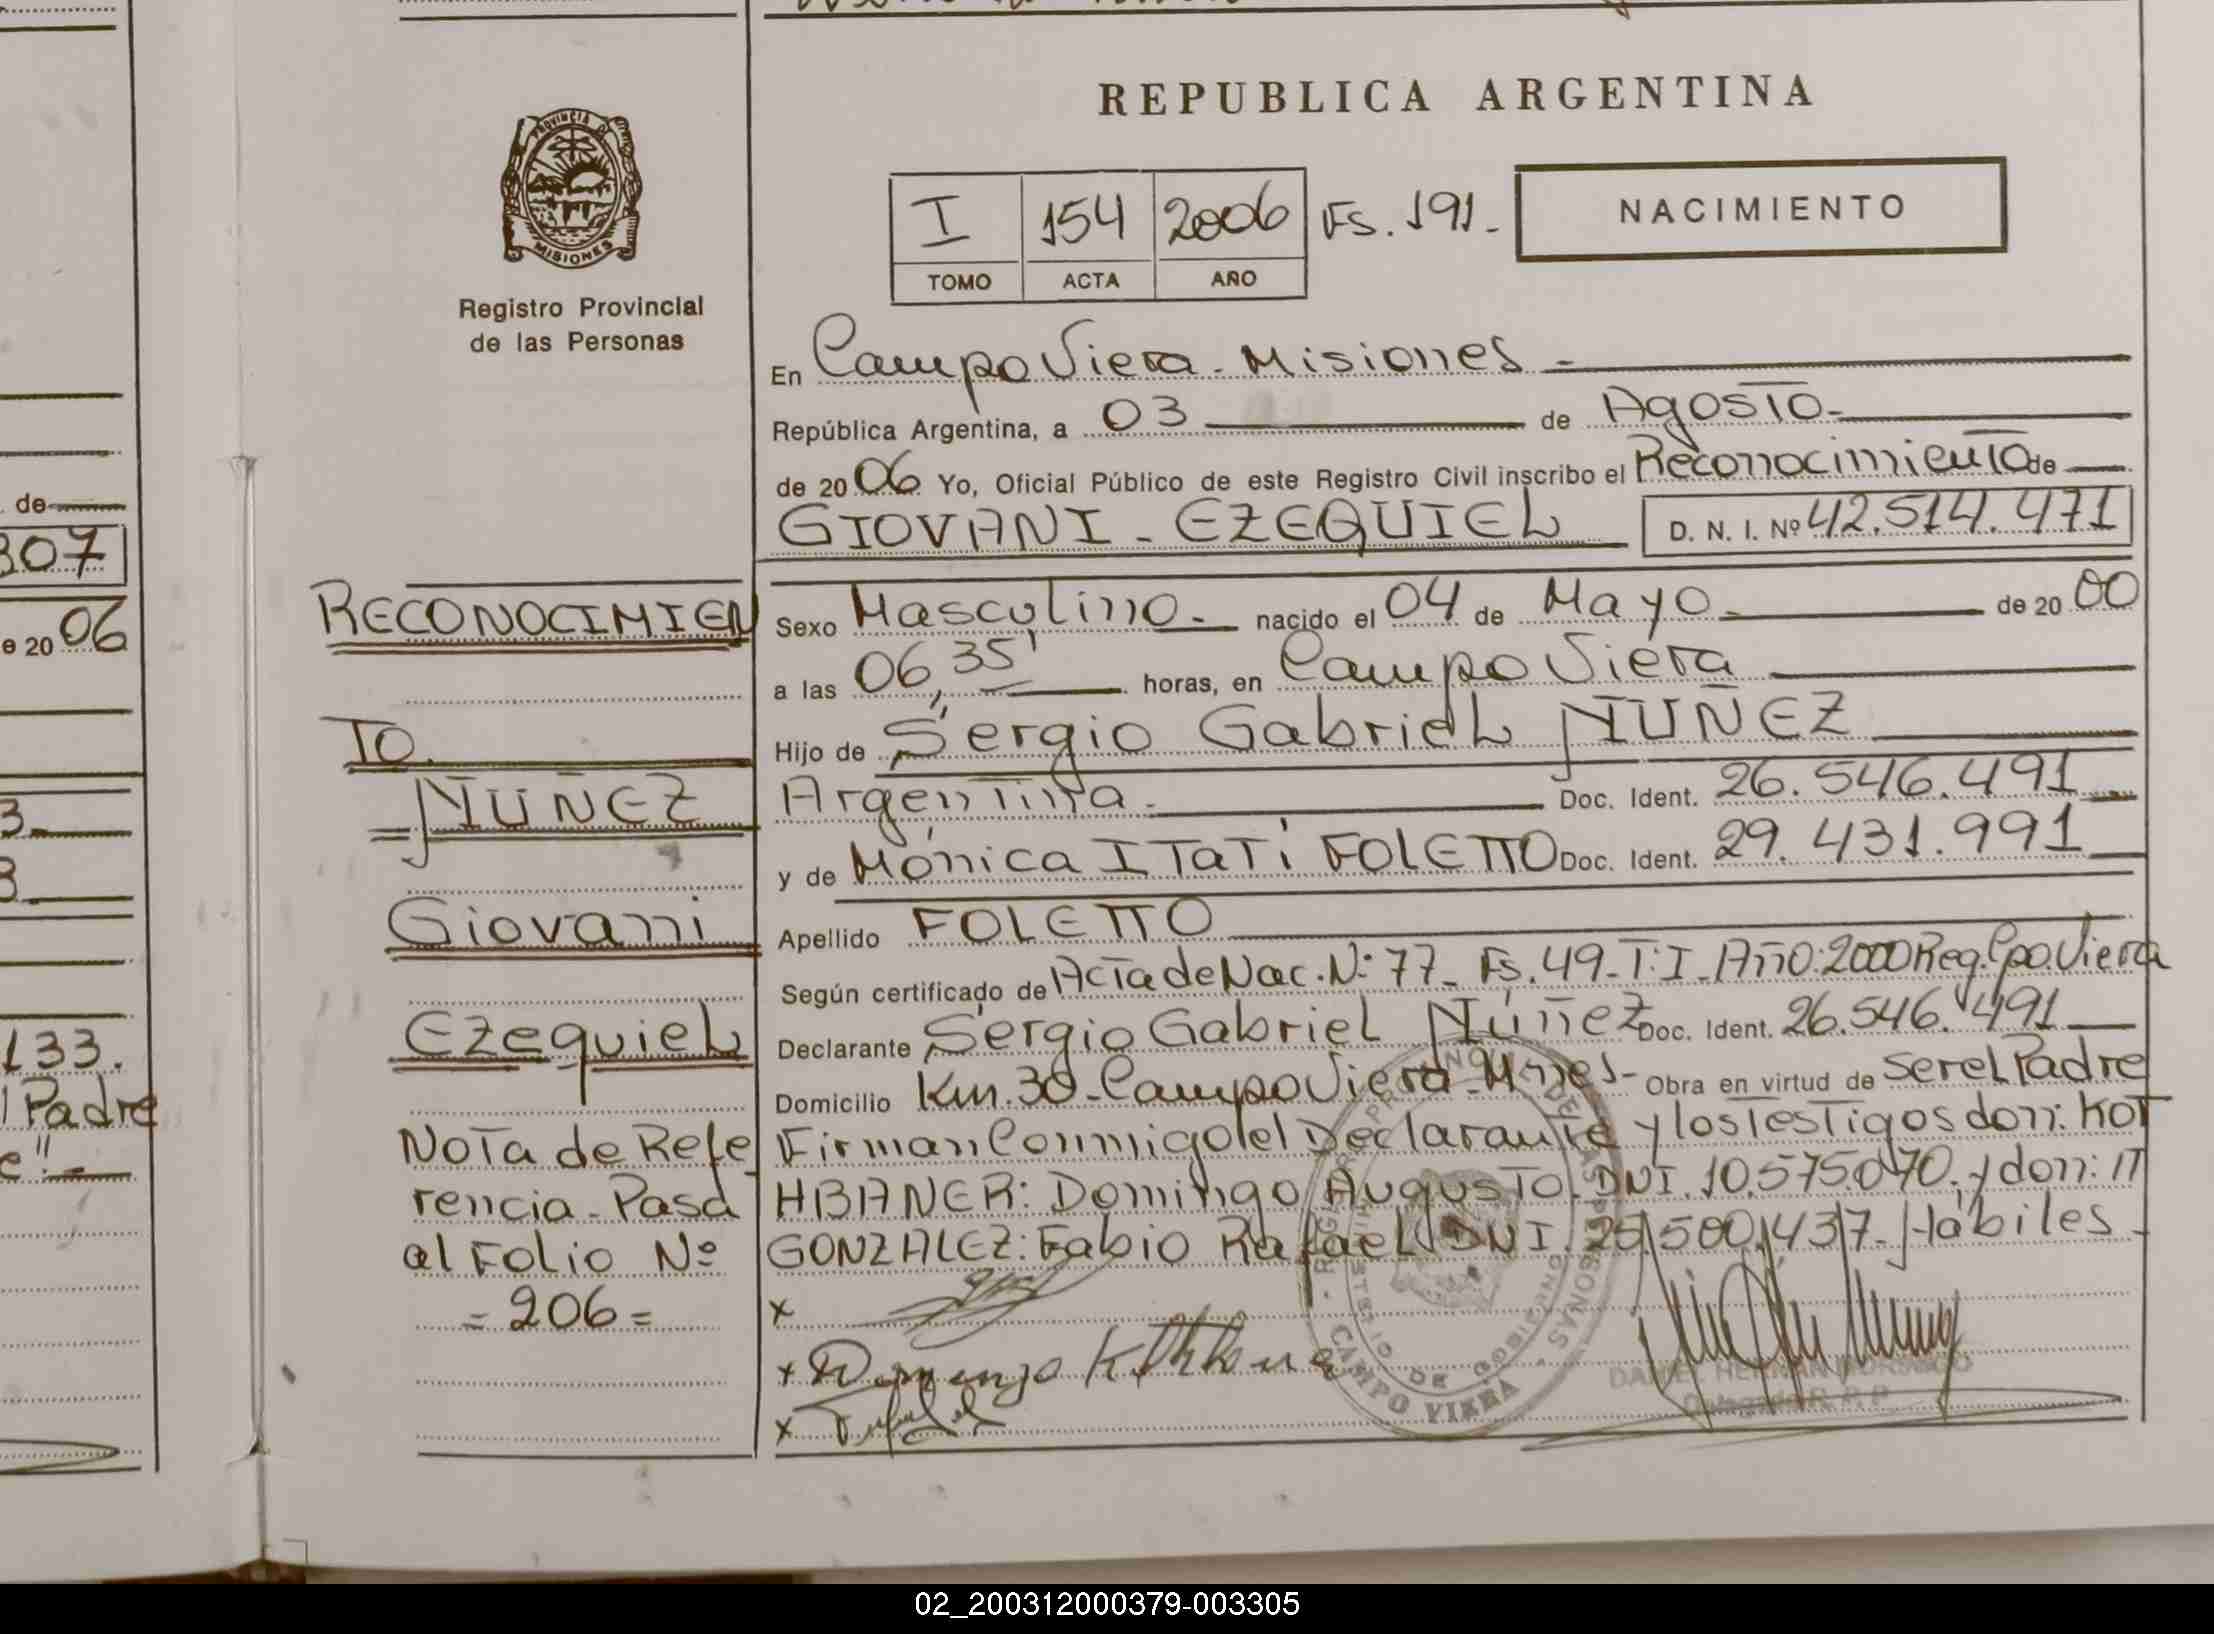 REPUBLICA ARGENTINA
PROVINCIA DE
MISIONES
Registro Provincial
de las Personas
I 154 2006 Fs. 191.-
TOMO ACTA AÑO
NACIMIENTO
En Campo Viera - Misiones -
República Argentina, a 03 de Agosto-
de 2006 Yo, Oficial Público de este Registro Civil inscribo el Reconocimiento de
GIOVANI - EZEQUIEL D. N. I. Nº 42.514.471
Sexo Masculino.- nacido el 04 de Mayo- de 2000
a las 06,35' horas, en Campo Viera
Hijo de Sergio Gabriel NUÑEZ
Argentina.- Doc. Ident. 26.546.491
y de Mónica ITATÍ FOLETTO Doc. Ident. 29.431.991
Apellido FOLETTO
Según certificado de Acta de Nac. N: 77- Fs. 49- T: I- Año: 2000 Reg. Cpo. Viera
Declarante Sergio Gabriel Núñez Doc. Ident. 26.546.491
Domicilio Km. 30- Campo Viera- Mnes- Obra en virtud de ser el Padre
Firman Conmigo el Declarante y los Testigos don: KOT
HBANER: Domingo Augusto. DNI. 10.575.070. y don: IT
GONZALEZ: Fabio Rafael DNI. 25.500.437- Hábiles-
x
x Domingo
x
CAMPO VIERA
MINISTERIO DE GOBIERNO
DANIEL HERNAN
Delegado R. P. P.
RECONOCIMIEN
TO.
= NUÑEZ
Giovani
Ezequiel
Nota de Refe
rencia - Pasa
al Folio Nº
= 206 =
de
307
e 20 06
3.
3
133.
Padre
e"
02_200312000379-003305